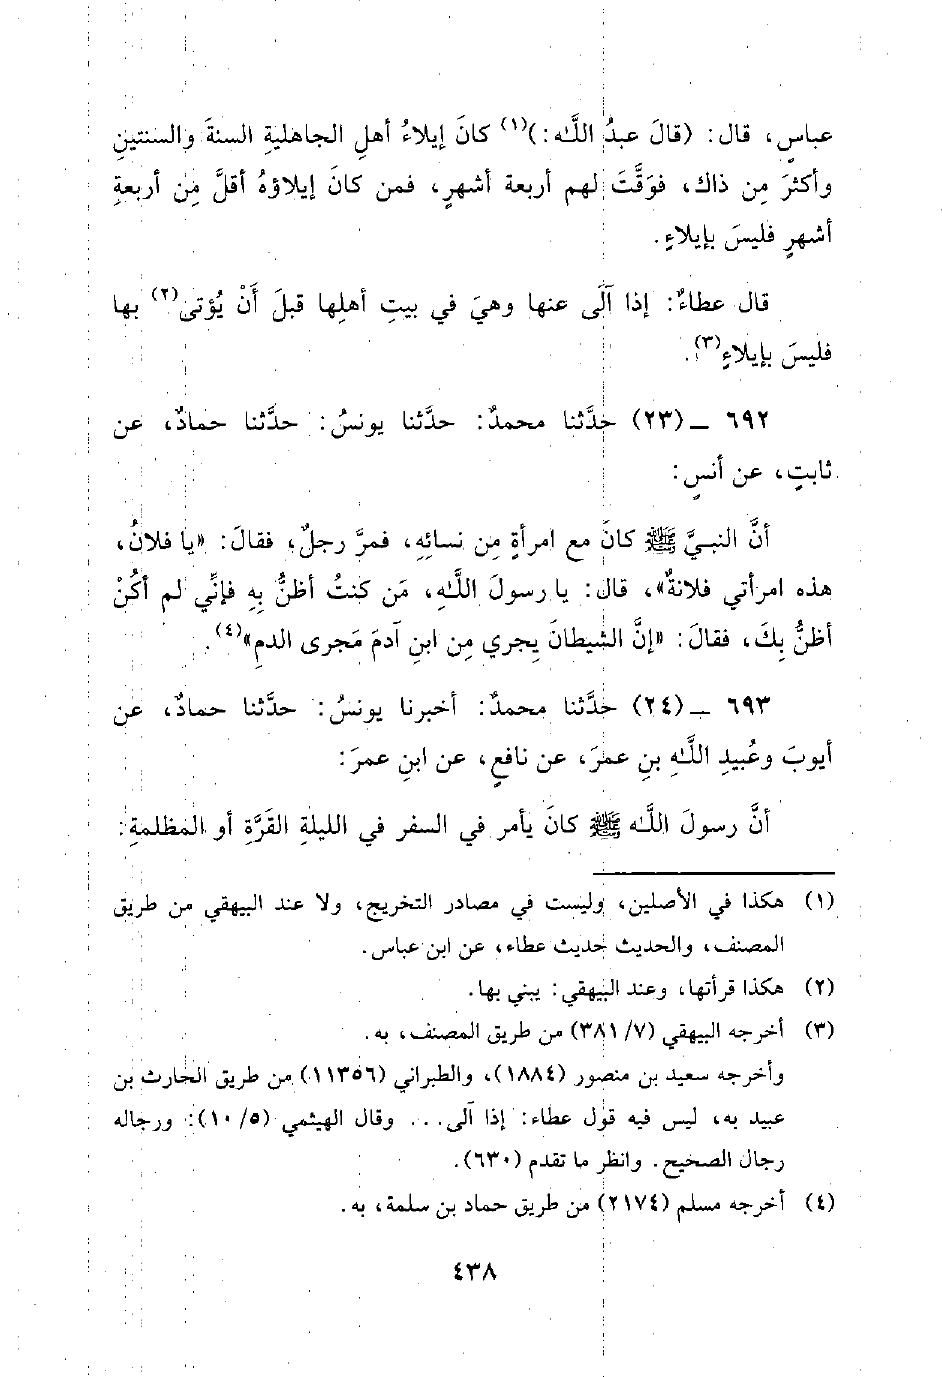 عباسٍ، قال: (قالَ عبدُ اللَّه:)(١) كانَ إيلاءُ أهلِ الجاهليةِ السنةَ والسنتينِ
وأكثرَ مِن ذاك، فوَقَّتَ لهم أربعة أشهرٍ، فمن كانَ إيلاؤهُ أقلَّ مِن أربعةِ
أشهرٍ فليسَ بإيلاءٍ.
قال عطاءٌ: إذا آلَى عنها وهيَ في بيتِ أهلِها قبلَ أَنْ يُؤتى(٢) بها
فليسَ بإيلاءٍ(٣).
٦٩٢ ـ (٢٣) حدَّثنا محمدٌ: حدَّثنا يونسُ: حدَّثنا حمادٌ، عن
ثابتٍ، عن أنسٍ:
أنَّ النبيَّ ﷺ كانَ مع امرأةٍ مِن نسائِهِ، فمرَّ رجلٌ، فقالَ: «يا فلانُ،
هذه امرأتي فلانةٌ»، قال: يا رسولَ اللَّهِ، مَن كنتُ أظنُّ بِهِ فإنِّي لم أكُنْ
أظنُّ بِكَ، فقالَ: «إنَّ الشيطانَ يجري مِن ابنِ آدمَ مَجرى الدمِ»(٤).
٦٩٣ ـ (٢٤) حدَّثنا محمدٌ: أخبرنا يونسُ: حدَّثنا حمادٌ، عن
أيوبَ وعُبيدِ اللَّهِ بنِ عمرَ، عن نافعٍ، عن ابنِ عمرَ:
أنَّ رسولَ اللَّه ﷺ كانَ يأمر في السفر في الليلةِ القَرَّةِ أو المظلمةِ:
(١) هكذا في الأصلين، وليست في مصادر التخريج، ولا عند البيهقي من طريق
المصنف، والحديث حديث عطاء، عن ابن عباس.
(٢) هكذا قرأتها، وعند البيهقي: يبني بها.
(٣) أخرجه البيهقي (٧/ ٣٨١) من طريق المصنف، به.
وأخرجه سعيد بن منصور (١٨٨٤)، والطبراني (١١٣٥٦) من طريق الحارث بن
عبيد به، ليس فيه قول عطاء: إذا آلى... وقال الهيثمي (٥/ ١٠): ورجاله
رجال الصحيح. وانظر ما تقدم (٦٣٠).
(٤) أخرجه مسلم (٢١٧٤) من طريق حماد بن سلمة، به.
٤٣٨